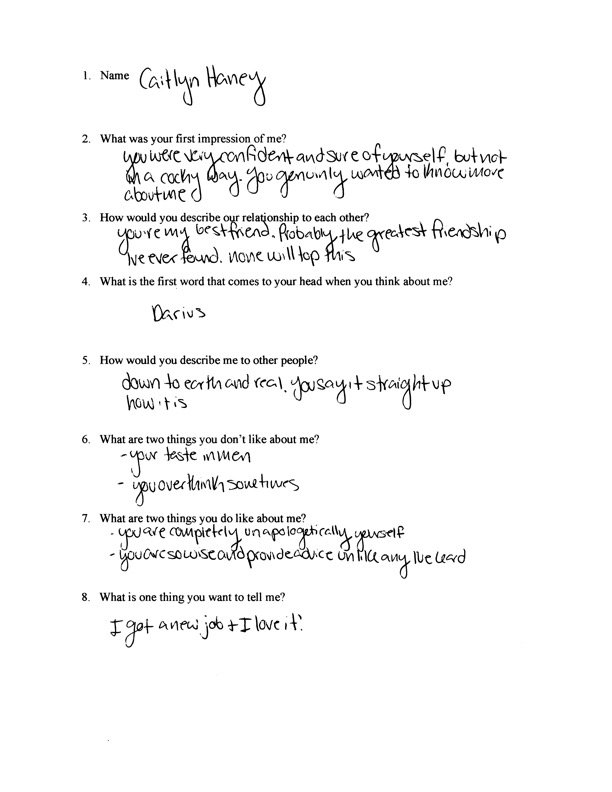 1. Name Caitlyn Haney
2. What was your first impression of me?
you were very confident and sure of yourself, but not
in a cocky way. You genuinly wanted to know more
about me
3. How would you describe our relationship to each other?
you're my best friend. Probably the greatest friendship
I've ever found. none will top this
4. What is the first word that comes to your head when you think about me?
Darius
5. How would you describe me to other people?
down to earth and real. You say it straight up
how it is
6. What are two things you don't like about me?
- your taste in men
- you overthink sometimes
7. What are two things you do like about me?
- you are completely unapologetically yourself
- you are so wise and provide advice unlike any I've heard
8. What is one thing you want to tell me?
I got a new job + I love it!